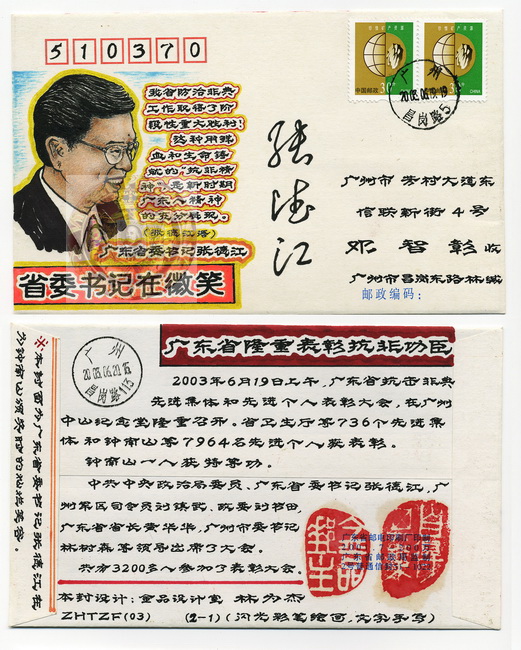 510370
我省防治非典
工作取得了阶
段性重大胜利!
这种用鲜
血和生命铸
就的"抗非精
神"是新时期
广东人精神
的充分展现。
(张德江语)
广东省委书记张德江
省委书记在微笑
张德江
中国邮政
CHINA
广州
2003.06.19.19
昌岗路5
广州市芳村大道东
信联新街4号
邓智彰 收
广州市昌岗东路林缄
邮政编码:
※本封画为广东省委书记张德江在
为钟南山颁奖时的灿烂笑容。
广州
2003.06.20.16
昌岗路113
广东省隆重表彰抗非功臣
2003年6月19日上午,广东省抗击非典
先进集体和先进个人表彰大会,在广州
中山纪念堂隆重召开。省卫生厅等736个先进集
体和钟南山等7964名先进个人获表彰。
钟南山一人获特等功。
中共中央政治局委员、广东省委书记张德江,广
州军区司令员刘镇武、政委刘书田,
广东省省长黄华华,广州市委书记
林树森等领导出席了大会。
共有3200多人参加了表彰大会。
本封设计:金品设计室 林为杰
ZHTZF(03) (2-1)(闪光彩笔绘画,文字手写)